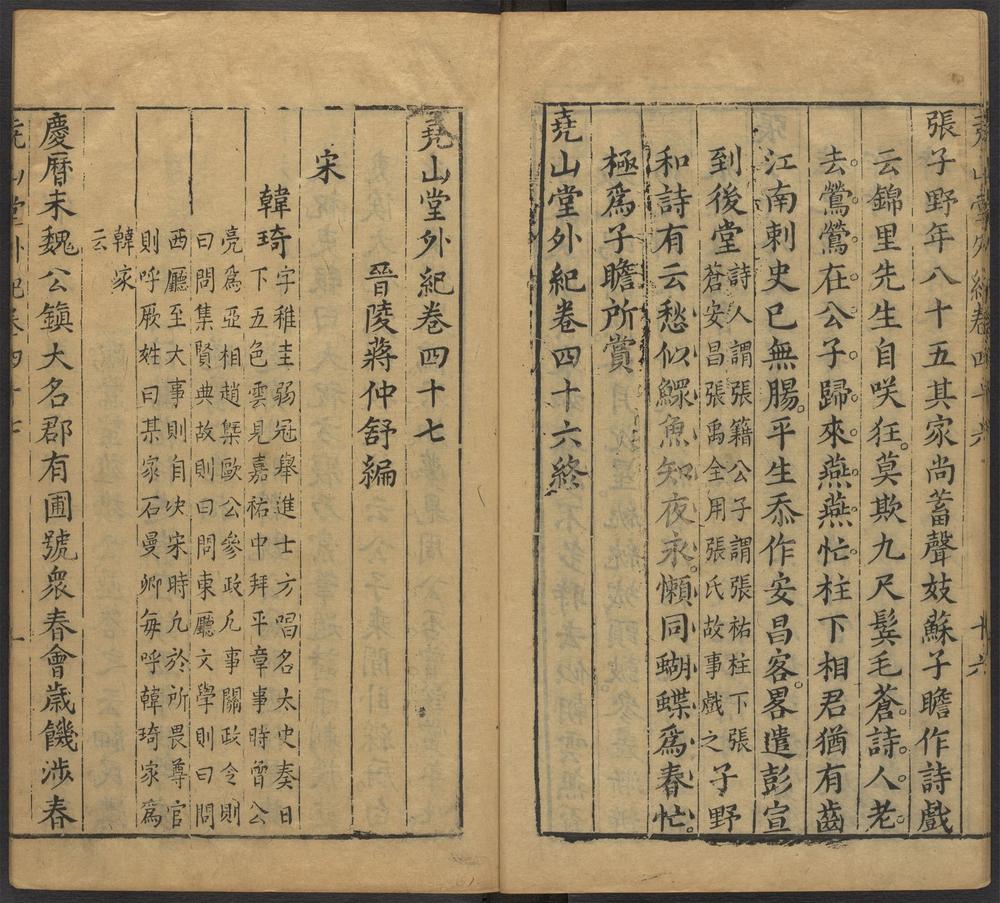 張子野年八十五其家尚蓄聲妓蘇子瞻作詩戲
云錦里先生自咲狂莫欺九尺鬂毛蒼詩人老
去鶯鶯在公子歸來燕燕忙柱下相君猶有齒
江南刺史已無腸平生忝作安昌客畧遣彭宣
到後堂詩人謂張籍公子謂張祐柱下張蒼安昌張禹全用張氏故事戲之子野
和詩有云愁似鰥魚知夜永懶同蝴蝶爲春忙
極爲子瞻所賞
堯山堂外紀卷四十六終
堯山堂外紀卷四十七
晉陵蔣仲舒編
宋
韓琦字稚圭弱冠舉進士方唱名太史奏日
下五色雲見嘉祐中拜平章事時曾公
亮爲亞相趙槩歐公參政凡事關政令則
曰問集賢典故則曰問東廳文學則曰問
西廳至大事則自决宋時凡於所畏尊官
則呼厥姓曰某家石曼卿每呼韓琦家爲
韓家
云
慶曆末魏公鎮大名郡有圃號衆春會歲饑涉春